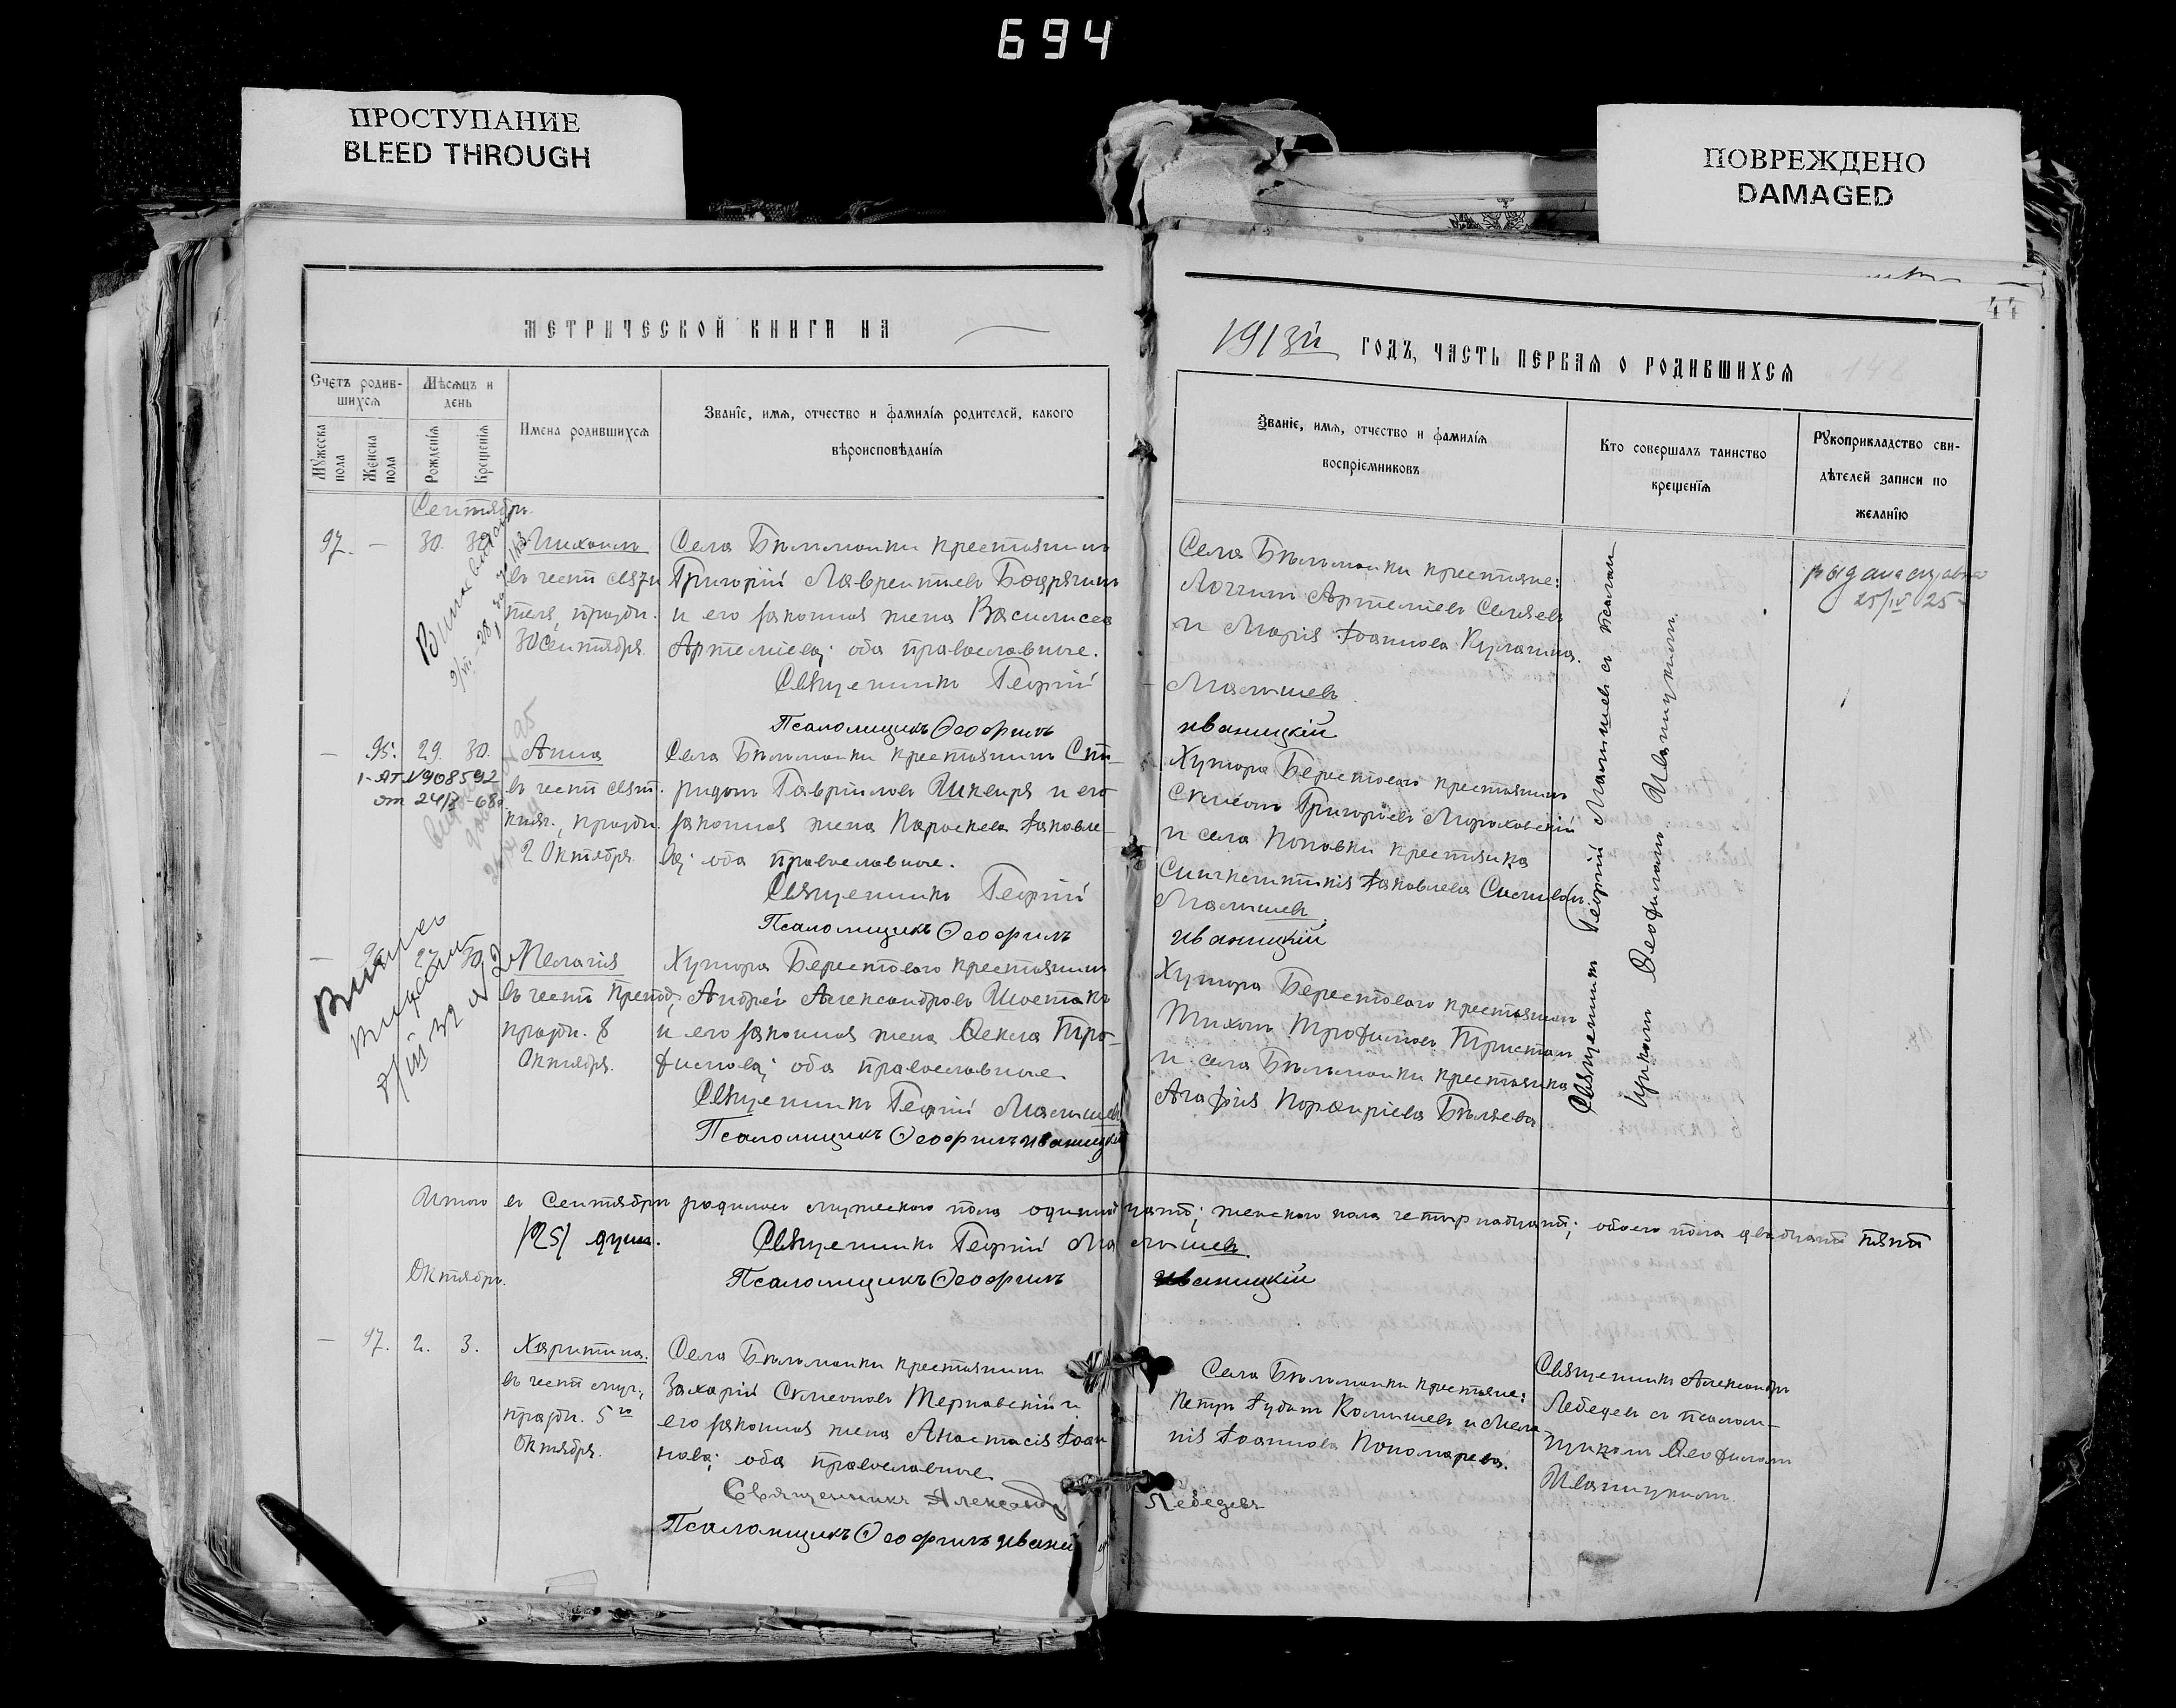 694
ПРОСТУПАНИЕ
BLEED THROUGH
ПОВРЕЖДЕНО
DAMAGED
44
МЕТРИЧЕСКОЙ КНИГИ НА
1913й ГОДЪ, ЧАСТЬ ПЕРВАЯ О РОДИВШИХСЯ
Счетъ родив-
шихся
Мѣсяцъ и
день
Мужеска
пола
Женска
пола
Рожденія
Крещенія
Имена родившихся
Званіе, имя, отчество и фамилія родителей, какого
вѣроисповѣданія
Званіе, имя, отчество и фамилія
воспріемниковъ
Кто совершалъ таинство
крещенія
Рукоприкладство сви-
дѣтелей записи по
желанію
Сентябрь.
97. — 30. 30. Михаилъ
въ честь святи
теля, праздн.
30 Сентября.
Села Бѣломанки крестьянинъ
Григорій Лаврентіевъ
и его законная жена Василиса
Артеміева; оба православные.
Священникъ Георгій
Псаломщикъ Ѳеофилъ
Села Бѣломанки крестьяне:
Логгинъ Артеміевъ
и Марія Іоаннова
Малышевъ
Иваницкій
25/IV 25
— 95. 29. 30. Анна
1-АТ №908592
въ честь свят.
княг., праздн.
2 Октября.
Села Бѣломанки крестьянинъ Спи-
ридонъ Гавріиловъ Шквиря и его
законная жена Параскева Іаковле-
ва; оба православные.
Священникъ Георгій
Псаломщикъ Ѳеофилъ
Хутора Берестового крестьянинъ
Симеонъ Григоріевъ Мороховскій
и села Поповки крестьянка
Синклитикія Іаковлева
Малышевъ
Иваницкій
— 27. 30. Пелагія
въ честь препод.,
праздн. 8
Октября.
Хутора Берестового крестьянинъ
Андрей Александровъ Шостакъ
и его законная жена Ѳекла Тро-
фимова; оба православные
Священникъ Георгій Малышевъ
Псаломщикъ Ѳеофилъ Иваницкій
Хутора Берестового крестьянинъ
Тихонъ Трофимовъ Тристанъ
и села Бѣломанки крестьянка
Агафія Порфиріева Бѣляева
Священникъ Георгій Малышевъ съ псалом
щикомъ Ѳеофиломъ Иваницкимъ.
Итого въ Сентябрѣ родилось мужескаго пола одиннадцать; женскаго пола четырнадцать; обоего пола двадцать пять
/25/ душъ.
Священникъ Георгій Малышевъ.
Псаломщикъ Ѳеофилъ Иваницкій
Октябрь.
— 97. 2. 3. Харитина.
въ честь муч.,
праздн. 5го
Октября.
Села Бѣломанки крестьянинъ
Захарій Симеоновъ Терновскій и
его законная жена Анастасія Іоан
нова; оба православные.
Священникъ Александръ
Псаломщикъ Ѳеофилъ Иваниц
Села Бѣломанки крестьяне:
Петръ Іудинъ Калышевъ и Мела
нія Іоаннова Пономарева.
Лебедевъ
Священникъ Александръ
Лебедевъ съ псалом-
щикомъ Ѳеофиломъ
Иваницкимъ.